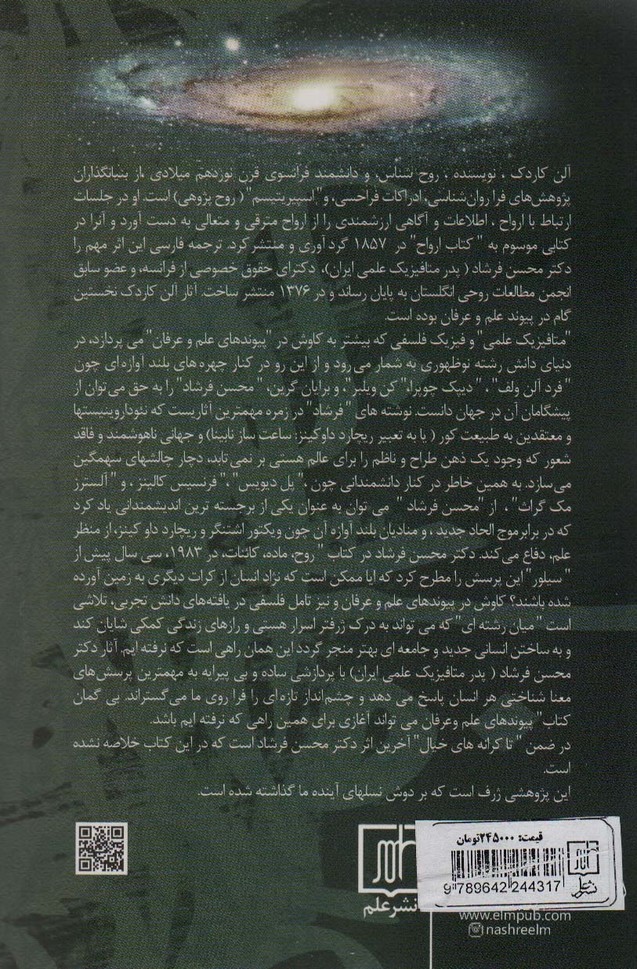 آلن کاردک ، نویسنده ، روح شناس، و دانشمند فرانسوی قرن نوزدهم میلادی ،از بنیانگذاران
پژوهش‌های فرا روان‌شناسی، ادراکات فراحسی، و "اسپیریتیسم" ( روح پژوهی) است. او در جلسات
ارتباط با ارواح ، اطلاعات و آگاهی ارزشمندی را از ارواح مترقی و متعالی به دست آورد و آنرا در
کتابی موسوم به " کتاب ارواح" در ۱۸۵۷ گرد آوری و منتشر کرد. ترجمه فارسی این اثر مهم را
دکتر محسن فرشاد ( پدر متافیزیک علمی ایران)، دکترای حقوق خصوصی از فرانسه، و عضو سابق
انجمن مطالعات روحی انگلستان به پایان رساند و در ۱۳۷۶ منتشر ساخت. آثار آلن کاردک نخستین
گام در پیوند علم و عرفان بوده است.
"متافیزیک علمی" و فیزیک فلسفی که بیشتر به کاوش در "پیوندهای علم و عرفان" می پردازد، در
دنیای دانش رشته نوظهوری به شمار می‌رود و از این رو در کنار چهره های بلند آوازه ای چون
" فرد آلن ولف" ، " دیپک چوپرا،" کن ویلبر"، و برایان گرین، " محسن فرشاد" را به حق می‌توان از
پیشگامان آن در جهان دانست. نوشته های " فرشاد" در زمره مهمترین آثاریست که نئوداروینیستها
و معتقدین به طبیعت کور ( یا به تعبیر ریچارد داوکینز: ساعت ساز نابینا) و جهانی ناهوشمند و فاقد
شعور که وجود یک ذهن طراح و ناظم را برای عالم هستی بر نمی‌تابد، دچار چالشهای سهمگین
می‌سازد. به همین خاطر در کنار دانشمندانی چون ، " پل دیویس" ،" فرنسیس کالینز ، و " آلستر
مک گراث"، از "محسن فرشاد " می توان به عنوان یکی از برجسته ترین اندیشمندانی یاد کرد
که در برابرموج الحاد جدید ، و منادیان بلند آوازه آن چون ویکتور اشتنگر و ریچارد داو کینز، از منظر
علم، دفاع می‌کند. دکتر محسن فرشاد در کتاب " روح، ماده، کائنات، در ۱۹۸۳، سی سال پیش از
" سیلور" این پرسش را مطرح کرد که آیا ممکن است که نژاد انسان از کرات دیگری به زمین آورده
شده باشند؟ کاوش در پیوندهای علم و عرفان و نیز تامل فلسفی در یافته‌های دانش تجربی، تلاشی
است " میان رشته ای" که می تواند به درک ژرفتر اسرار هستی و رازهای زندگی کمکی شایان کند
و به ساختن انسانی جدید و جامعه ای بهتر منجر گردد این همان راهی است که نرفته ایم. آثار دکتر
محسن فرشاد ( پدر متافیزیک علمی ایران) با پردازشی ساده و بی پیرایه به مهمترین پرسش‌های
معنا شناختی هر انسان پاسخ می دهد و چشم‌انداز تازه‌ای را فرا روی ما می‌گستراند. بی گمان
کتاب" پیوندهای علم وعرفان می تواند آغازی برای همین راهی که نرفته ایم باشد.
در ضمن " تا کرانه های خیال" آخرین اثر دکتر محسن فرشاد است که در این کتاب خلاصه نشده
است.
این پژوهشی ژرف است که بر دوش نسلهای آینده ما گذاشته شده است.
قیمت: ۲۴۵۰۰۰تومان
نشر علم
9 789642 244317
نشر علم
www.elmpub.com
nashreelm